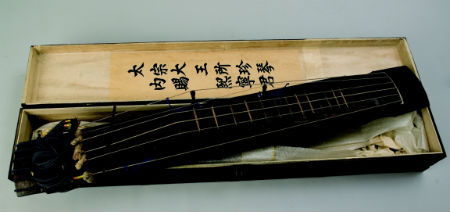 太宗大王所珍琴
内賜熙寧君